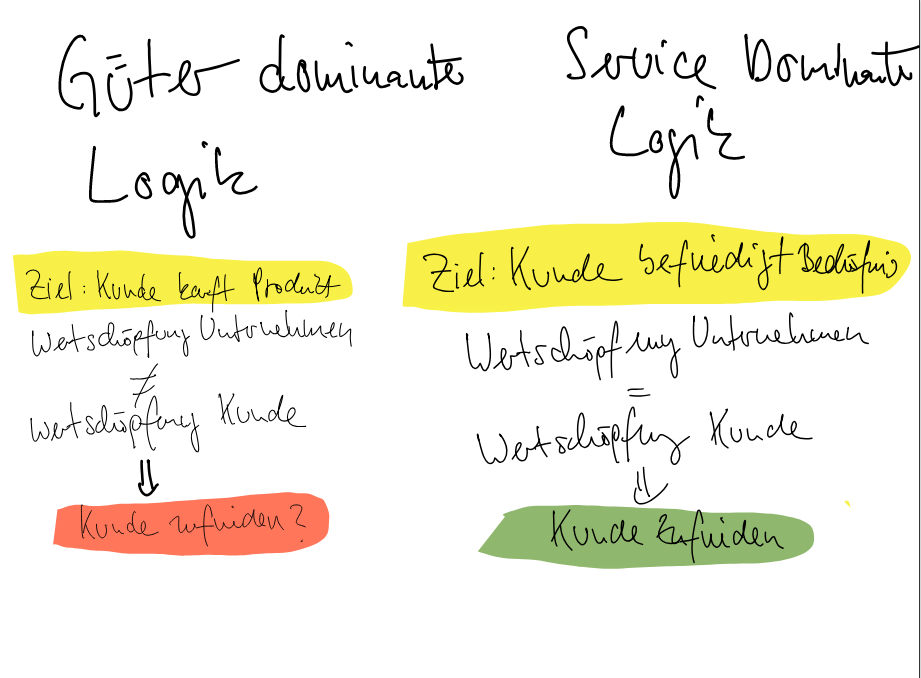 Güter dominante
Logik
Ziel: Kunde kauft Produkt
Wertschöpfung Unternehmen
≠
Wertschöpfung Kunde
⇓
Kunde zufrieden?
Service Dominante
Logik
Ziel: Kunde befriedigt Bedürfnis
Wertschöpfung Unternehmen
=
Wertschöpfung Kunde
⇓
Kunde Zufrieden